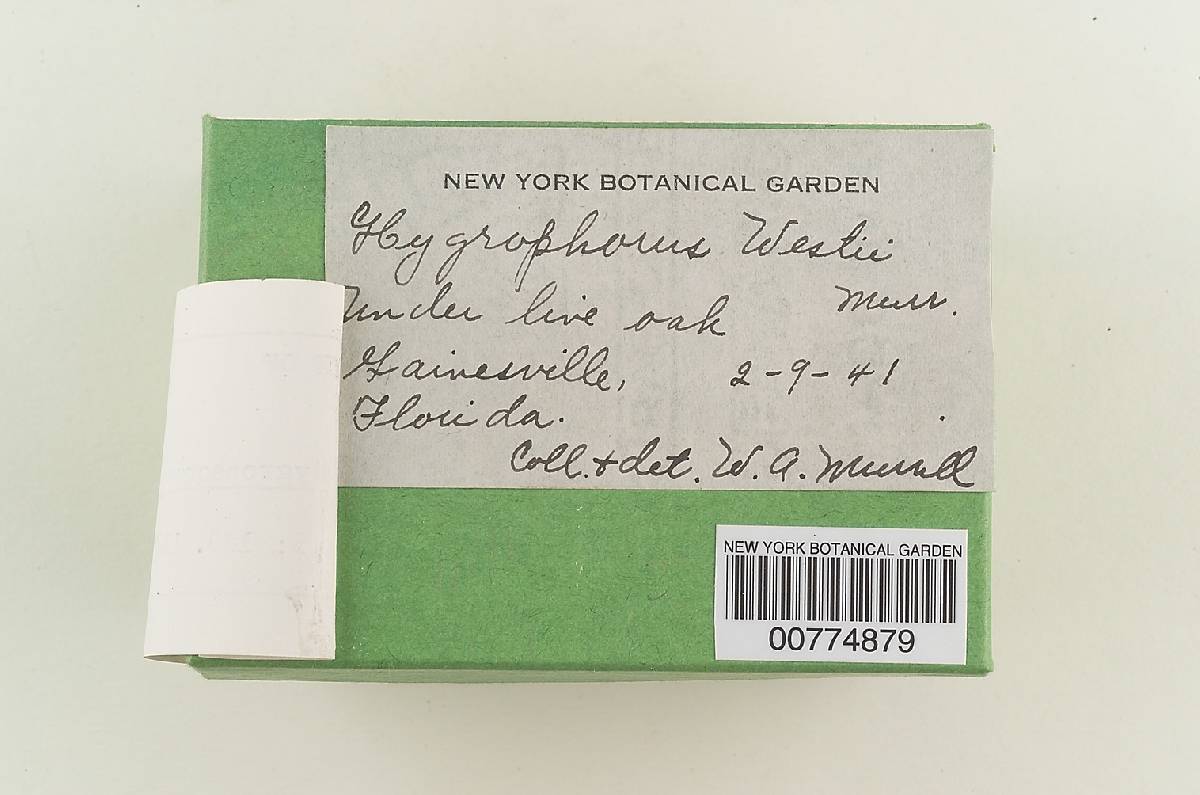 NEW YORK BOTANICAL GARDEN
Hygrophorus Westii
Murr.
under live oak
Gainesville, 2-9-41
Florida.
Coll. + det. W. A. Murrill
NEW YORK BOTANICAL GARDEN
00774879